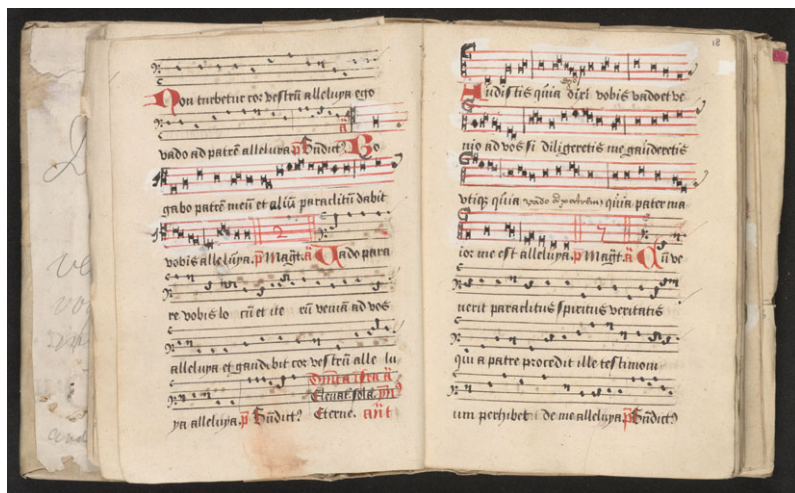 Non turbetur cor vestrū alleluya ego
vado ad patrē alleluya p̄ Bn̄dict? Ro
gabo patrē meū et aliū paraclitū dabit
2
vobis alleluya. p̄ Magt. ā Vado para
re vobis lo cū et ite rū veniā ad vos
alleluya et gaudebit cor vestrū alle lu
ya alleluya. p̄ Bn̄dict? Eterne. ant
18
Audistis quia dixi vobis vado et ve
nio ad vos si diligeretis me gauderetis
vtiqꝫ quia vado ad patrem quia pater ma
7
ior me est alleluya. p̄ Magt. ā Cū ve
nerit paraclitus spiritus veritatis
qui a patre procedit ille testimoni
um perhibet de me alleluya. p̄ Bn̄dict?